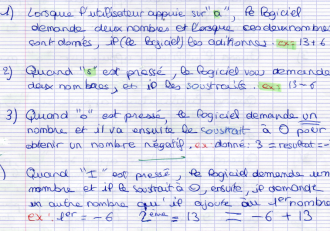 1) Lorsque l'utilisateur appuie sur "a", le logiciel
demande deux nombres et lorsque ces deux nombres
sont donnés, il (le logiciel) les aditionne. ex: 13+6
2) Quand "s" est pressé, le logiciel vou demande
deux nombres, et il les soustrait. ex: 13-6
3) Quand "o" est pressé, le logiciel demande un
nombre et il va ensuite le soustrait à 0 pour
obtenir un nombre négatif. ex donne: 3 = resultat = -
) Quand "I" est pressé, le logiciel demande un
nombre et il le soustrait à 0, ensuite, il demande
un autre nombre qu'il ajoute au 1er nombre
ex: 1er = -6 2ème = 13 = -6 + 13